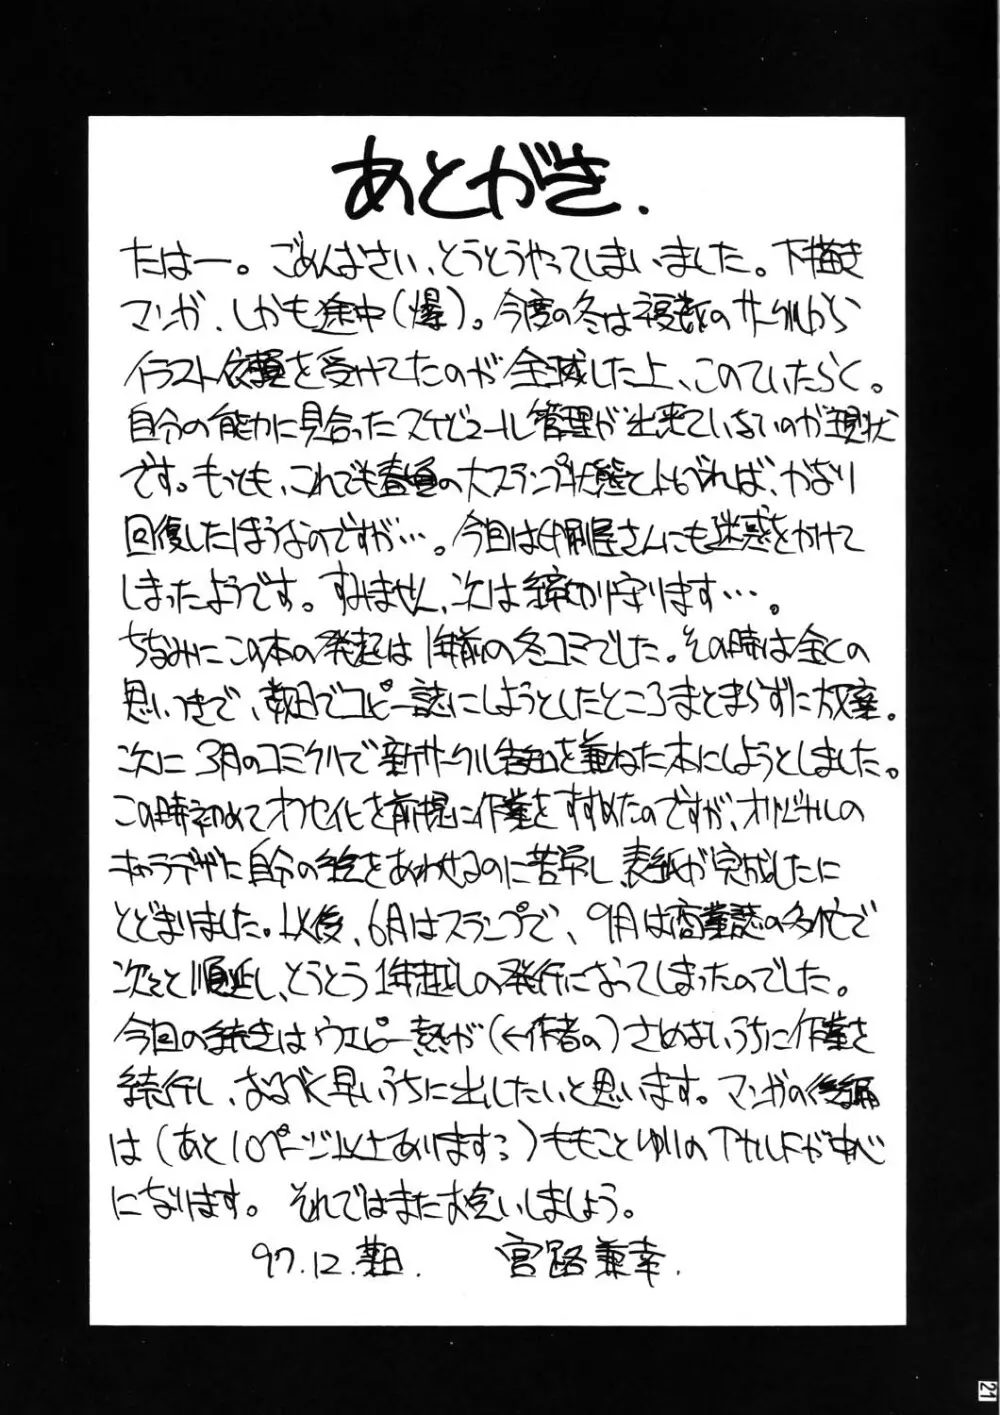 あとがき.
たはー。ごめんなさい、とうとうやってしまいました。下描き
マンガ、しかも途中(爆)。今度の冬は複数のサークルから
イラスト依頼を受けてたのが全滅した上、このていたらく。
自分の能力に見合ったスケジュール管理が出来ていないのが現状
です。もっとも、これでも春夏の大スランプ状態とくらべれば、かなり
回復したほうなのですが…。今回は印刷屋さんにも迷惑をかけて
しまったようです。すみません、次は締切り守ります…。
ちなみにこの本の発起は1年前の冬コミでした。その時は全くの
思いつきで、数日でコピー誌にしようとしたところまとまらずに放棄。
次に3月のコミケルで新サークル告知を兼ねた本にしようとしました。
この時初めてオフセイヒを前提に作業をすすめたのですが、オリジナルの
キャラデザに自分の絵をあわせるのに苦労し、表紙が完成したに
とどまりました。以後、6月はスランプで、9月は商業誌の多忙で
次々と順延し、とうとう1年越しの発行になってしまったのでした。
今回の続きはウエピー熱が(←作者の)さめないうちに作業を
続行し、なるべく早いうちに出したいと思います。マンガの後編
は(あと10ページ以上あります;)ももことゆりのアカルドが中心
になります。それではまたお会いしましょう。
97.12.某日. 宮路兼幸.
21